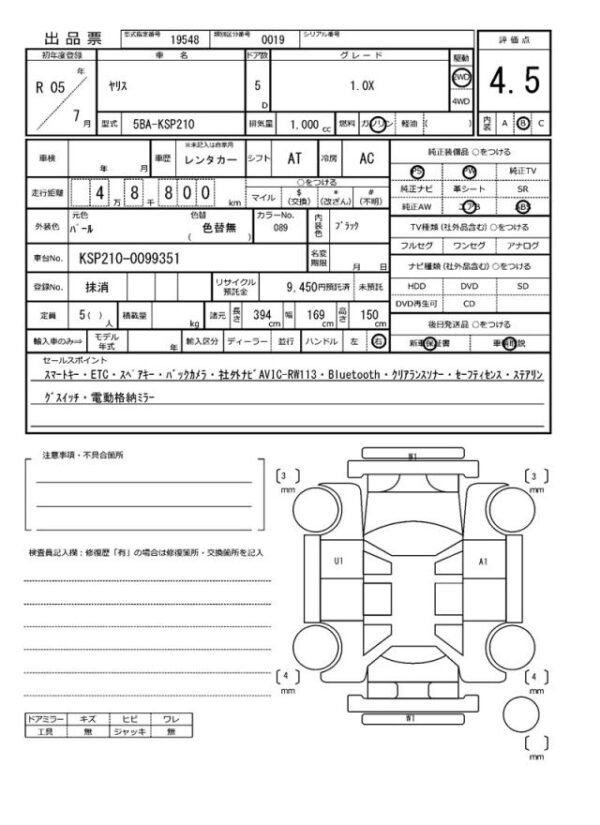 出品票 型式指定番号 19548 類別区分番号 0019 シリアル番号
評価点
初年度登録 車名 ドア数 グレード 駆動
R 05 年 7 月 ヤリス 5 D 1.0X 2WD 4WD
4.5
型式 5BA-KSP210 排気量 1,000 cc 燃料 ガソリン 軽油 ( )
内装 A B C
車検 年 月 車歴 ※未記入は自家用 レンタカー シフト AT 冷房 AC
純正装備品 ○をつける
PS PW 純正TV
純正ナビ 革シート SR
純正AW エアB ABS
走行距離 4 万 8 千 8 0 0 km
○をつける
マイル $ (交換) * (改ざん) # (不明)
外装色 元色 パール 色替 ( 色替無 ) カラーNo. 089 内装色 ブラック
TV種類(社外品含む) ○をつける
フルセグ ワンセグ アナログ
車台No. KSP210-0099351 名変期限 月 日
ナビ種類(社外品含む) ○をつける
HDD DVD SD
DVD再生可 CD
登録No. 抹消 リサイクル預託金 9,450円預託済 未預託
定員 5( ) 人 積載量 kg 諸元 長さ 394 cm 幅 169 cm 高さ 150 cm
後日発送品 ○をつける
新車保証書 車輌取説
輸入車のみ⇒ モデル年式 年 輸入区分 ディーラー 並行 ハンドル 左 右
セールスポイント
スマートキー・ETC・スペアキー・バックカメラ・社外ナビAVIC-RW113・Bluetooth・クリアランスソナー・セーフティセンス・ステアリン
グスイッチ・電動格納ミラー
注意事項・不具合箇所
検査員記入欄：修復歴「有」の場合は修復箇所・交換箇所を記入
W1
3 mm
3 mm
U1
A1
4 mm
4 mm
W1
mm
ドアミラー キズ ヒビ ワレ
工具 無 ジャッキ 無